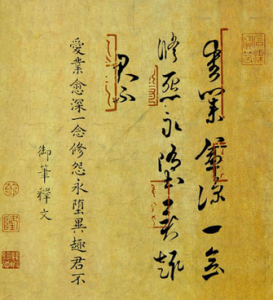 愛業愈深一念
修怨永墮異趣
君不
愛業愈深一念修怨永墮異趣君不
御筆釋文